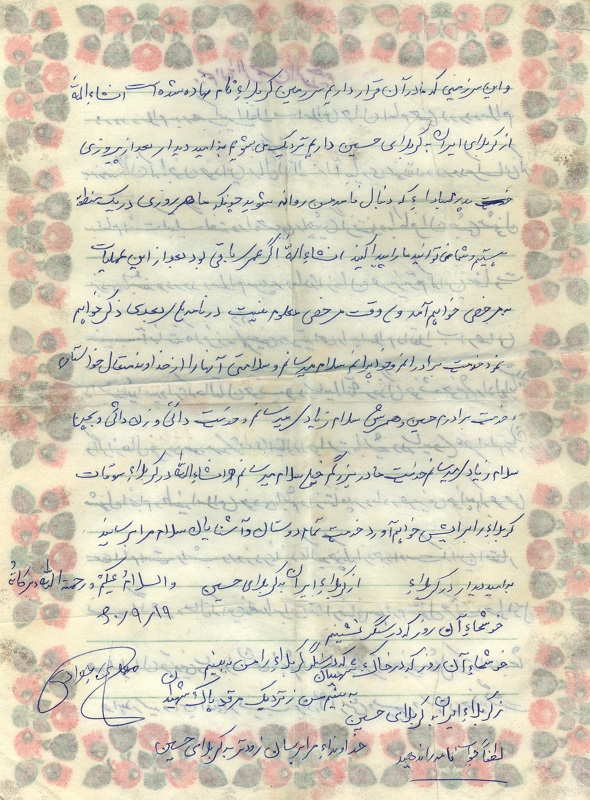 و این سرزمینی که ما در آن قرار داریم سرزمین کربلاء نام نهاده شده است انشاءالله
از کربلای ایران به کربلای حسین داریم نزدیک می شویم به امید دیدار بعد از پیروزی
پدر مبادا که دنبال نامه من روانه شوید چونکه ما هر روزی در یک منطقه
هستیم و شما نمی توانید ما را پیدا کنید انشاءالله اگر عمری باقی بود بعد از این عملیات
به مرخصی خواهم آمد و وقت مرخصی معلوم نیست در نامه های بعدی ذکر خواهم
نمود خدمت برادرانم و خواهرانم سلام میرسانم و سلامتی آنها را از خداوند متعال خواستارم
و خدمت برادرم حسین و همسرش سلام زیادی میرسانم و خدمت دائی و زن دائی و بچه ها
سلام زیادی میرسانم خدمت مادر بزرگم خیلی سلام میرسانم و انشاءالله در کربلاء سوقات
کربلاء را برایش خواهم آورد خدمت تمام دوستان و آشنایان سلام مرا برسانید
به امید دیدار در کربلاء از کربلاء ایران به کربلای حسین والسلام علیکم و رحمة الله و برکاته
۶۰/۹/۱۹
خوشهاء آن روز که در سنگر نشینم
خوشهاء آن روز که در خاک شهیدان که سنگر کربلاء را من به بینم
ز کربلاء ایران به کربلای حسین به بینم من ز نزدیک مرقد پاک شهیدان
خداوندا مرا برسان زودتر به کربلای حسین
لطفاً جواب نامه را بدهید
مهدی